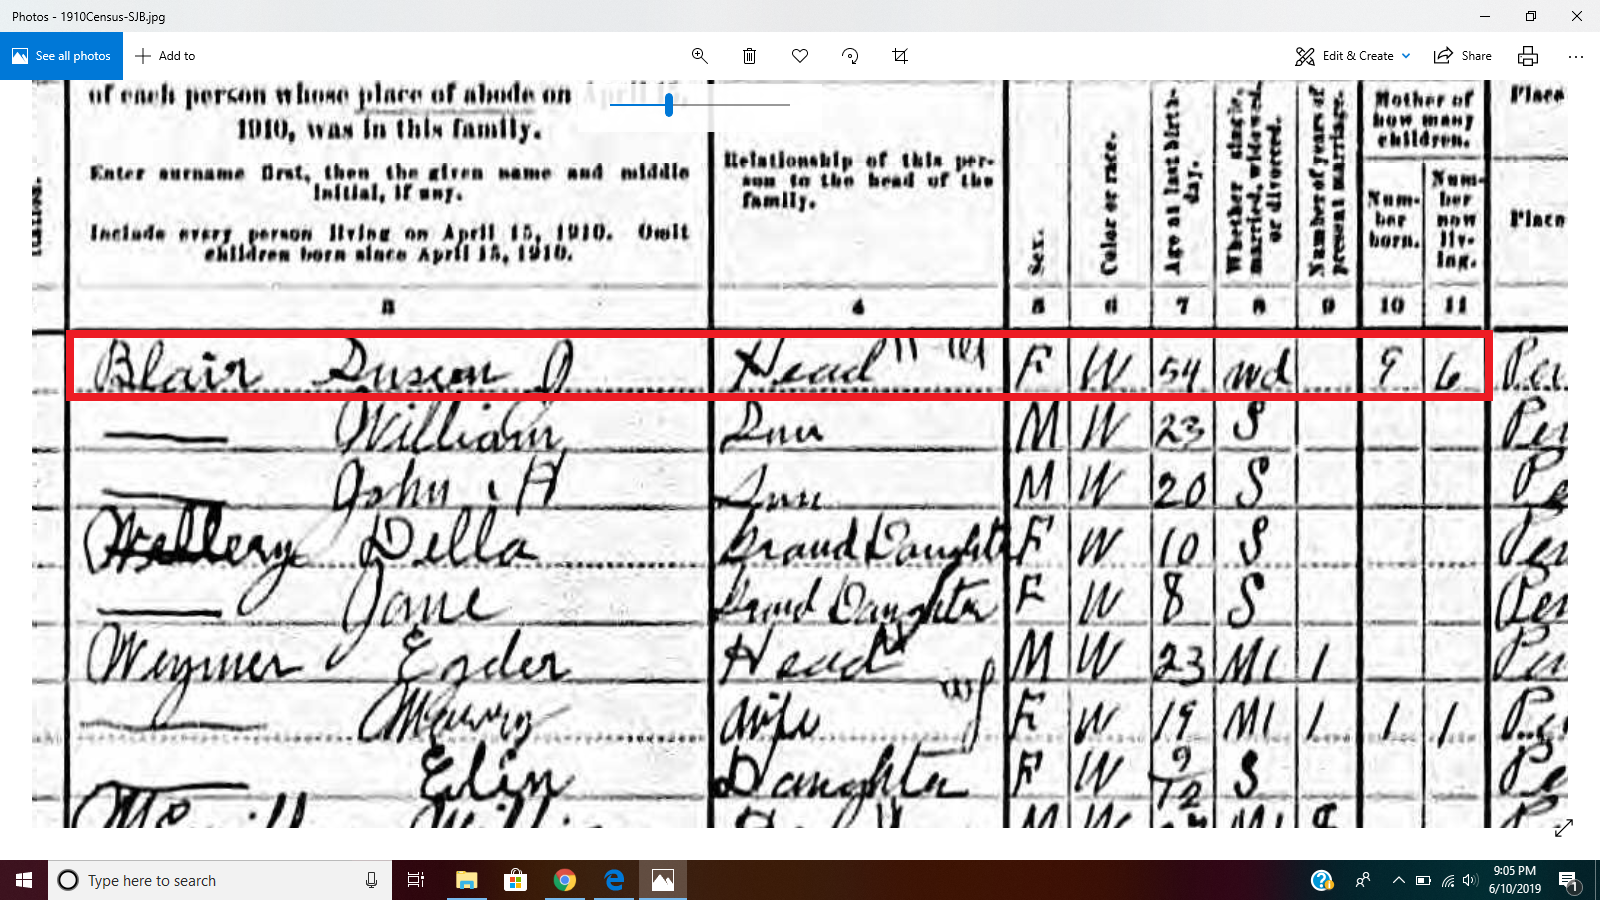 Photos - 1910Census-SJB.jpg
See all photos
Add to
Edit & Create
Share
of each person whose place of abode on April 15,
1910, was in this family.
Enter surname first, then the given name and middle
initial, if any.
Include every person living on April 15, 1910. Omit
children born since April 15, 1910.
Relationship of this per-
son to the head of the
family.
Sex.
Color or race.
Age at last birth-
day.
Whether single,
married, widowed,
or divorced.
Number of years of
present marriage.
Mother of
how many
children.
Num-
ber
born.
Num-
ber
now
liv-
ing.
Place
Place
3 4 5 6 7 8 9 10 11
Blair Susan J Head F W 54 Wd 9 6
William Son M W 23 S
John H Son M W 20 S
Della Grand Daughter F W 10 S
Jane Grand Daughter F W 8 S
Weymer Head M W 23 M1 1
Wife F W 19 M1 1 1 1
Daughter F W 9/12 S
Type here to search
9:05 PM
6/10/2019
1